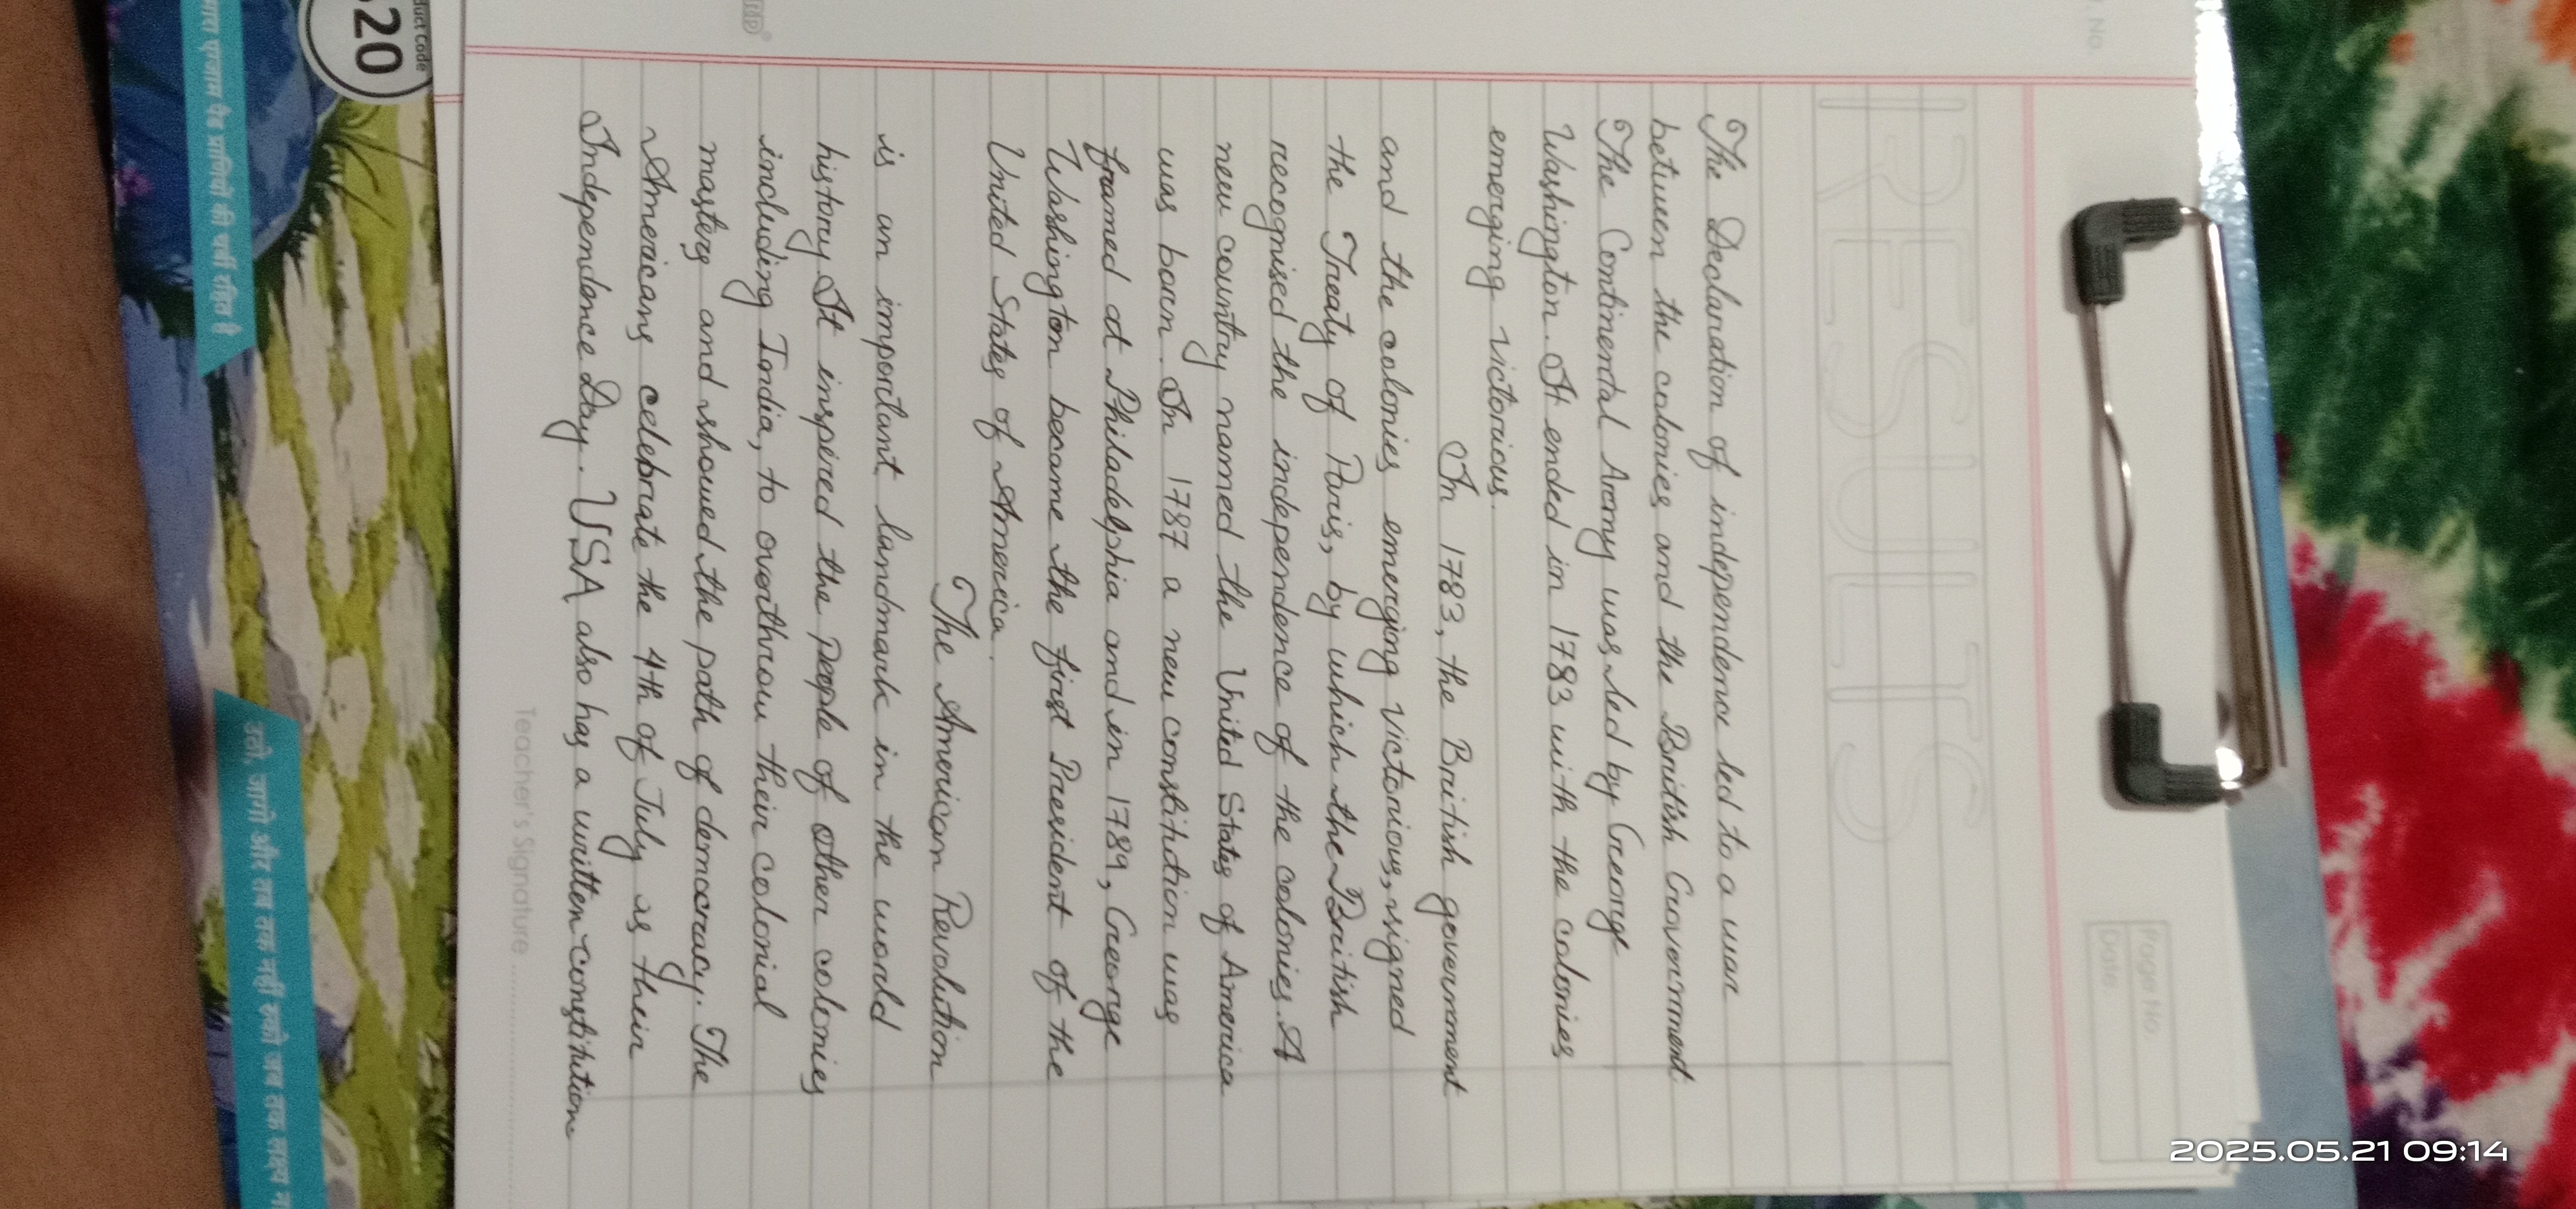 RESULTS
Page No.
Date
The Declaration of independence led to a war
between the colonies and the British Government.
The Continental Army was led by George
Washington. It ended in 1783 with the colonies
emerging victorious.
In 1783, the British government
and the colonies emerging victorious, signed
the Treaty of Paris, by which the British
recognised the independence of the colonies. A
new country named the United States of America
was born. In 1787 a new constitution was
framed at Philadelphia and in 1789, George
Washington became the first President of the
United States of America.
The American Revolution
is an important landmark in the world
history. It inspired the people of other colonies
including India, to overthrow their colonial
masters and showed the path of democracy. The
Americans celebrate the 4th of July as their
Independence Day. USA also has a written constitution
Teacher's Signature
duct Code
20
उठो, जागो और तब तक नहीं रुको जब तक लक्ष्य
2025.05.21 09:14